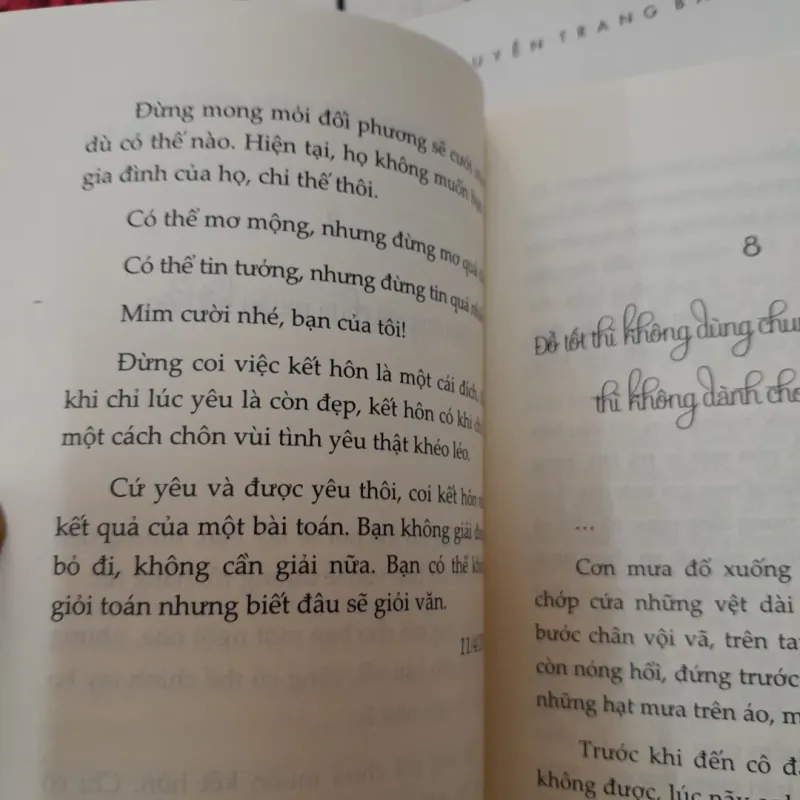 Đừng mong mỏi đối phương sẽ cưới
dù có thế nào. Hiện tại, họ không muốn
gia đình của họ, chỉ thế thôi.
Có thể mơ mộng, nhưng đừng mơ quá
Có thể tin tưởng, nhưng đừng tin quá
Mỉm cười nhé, bạn của tôi!
Đừng coi việc kết hôn là một cái đích,
khi chỉ lúc yêu là còn đẹp, kết hôn có khi
một cách chôn vùi tình yêu thật khéo léo.
Cứ yêu và được yêu thôi, coi kết hôn
kết quả của một bài toán. Bạn không giải
bỏ đi, không cần giải nữa. Bạn có thể
giỏi toán nhưng biết đâu sẽ giỏi văn.
UYÊN TRANG
8
Đồ tốt thì không dùng
thì không dành
...
Cơn mưa đổ xuống
chớp cứa những vệt dài
bước chân vội vã, trên
còn nóng hổi, đứng trước
những hạt mưa trên áo,
Trước khi đến cô
không được, lúc nãy